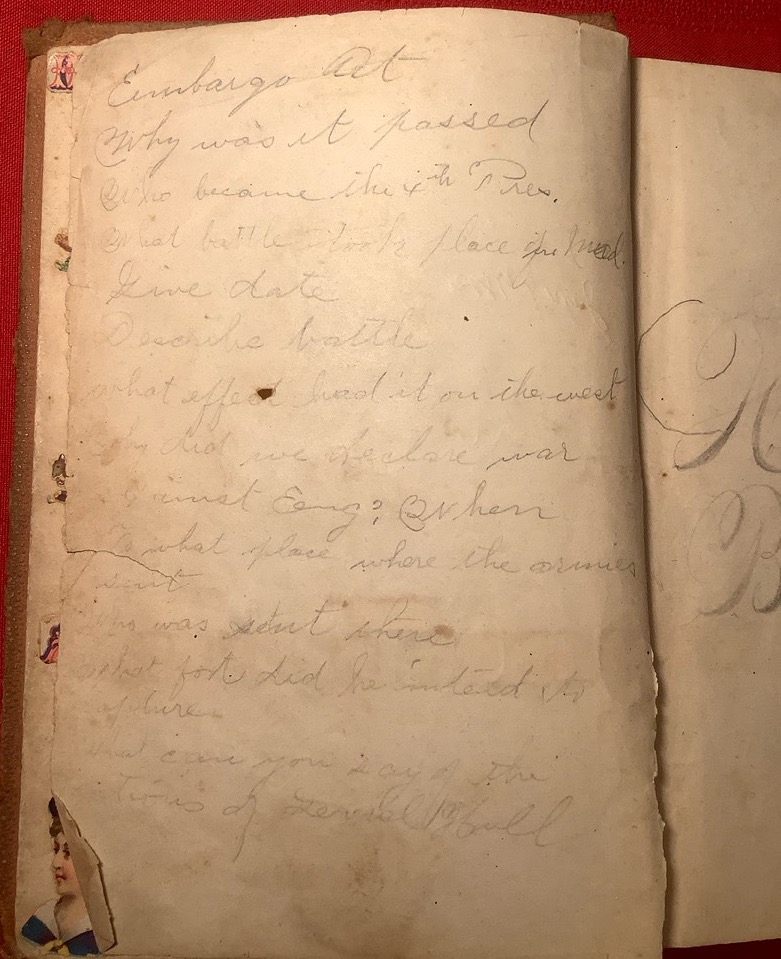 Embargo Act
Why was it passed
Who became the 4th Pres.
What battle took place
Give date
Describe battle
what effect had it on the west
why did we declare war
against Eng? When
To what place where the armies
sent
who was sent there
what fort did he intend to
capture
What can you say of the
of General Hull